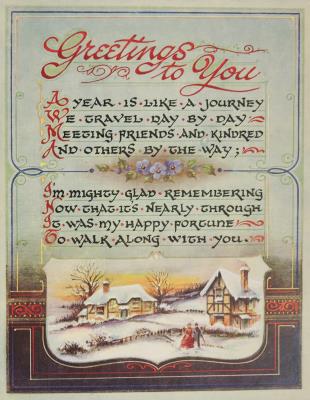 Greetings
to You
A YEAR · IS · LIKE · A · JOURNEY
WE · TRAVEL · DAY · BY · DAY
MEETING · FRIENDS · AND · KINDRED
AND · OTHERS · BY · THE · WAY ;
I'M · MIGHTY · GLAD · REMEMBERING
NOW · THAT · ITS · NEARLY · THROUGH
IT · WAS · MY · HAPPY · FORTUNE
TO · WALK · ALONG · WITH · YOU .